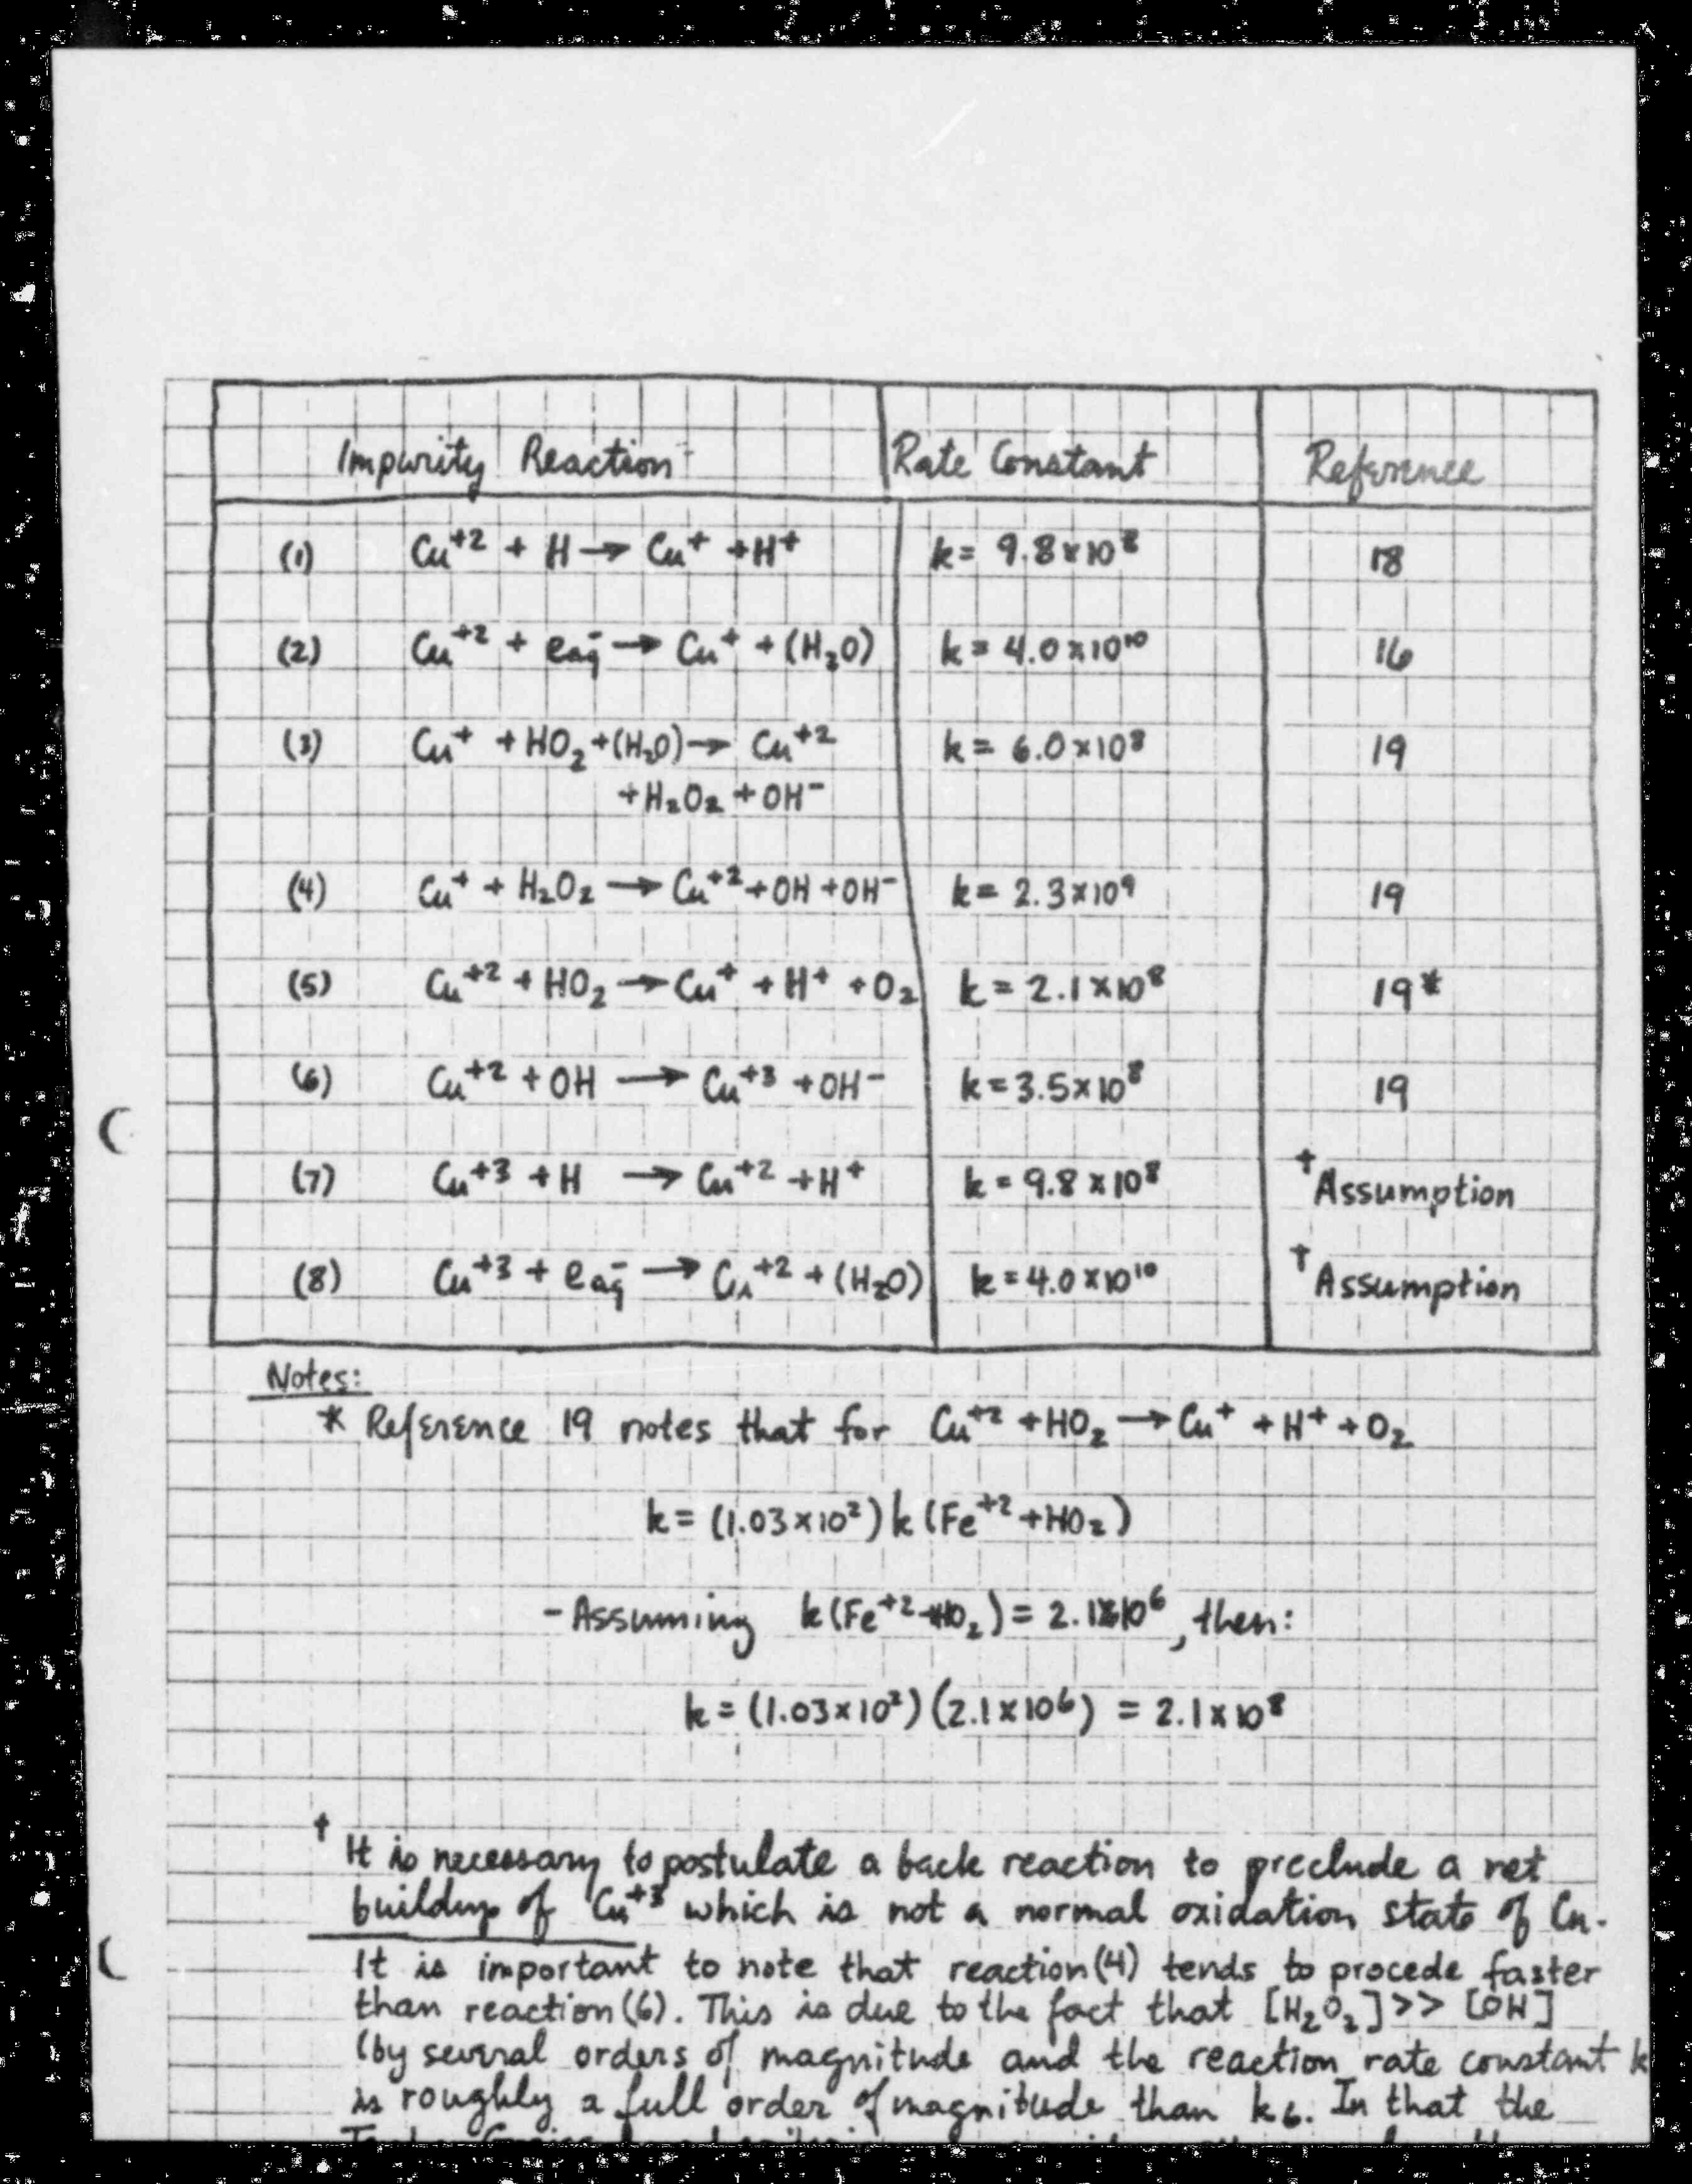 Impurity Reaction Rate Constant Reference
(1) Cu⁺² + H → Cu⁺ + H⁺ k = 9.8 x 10⁸ 18
(2) Cu⁺² + eaq⁻ → Cu⁺ + (H₂O) k = 4.0 x 10¹⁰ 16
(3) Cu⁺ + HO₂ + (H₂O) → Cu⁺² k = 6.0 x 10⁸ 19
+ H₂O₂ + OH⁻
(4) Cu⁺ + H₂O₂ → Cu⁺² + OH + OH⁻ k = 2.3 x 10⁹ 19
(5) Cu⁺² + HO₂ → Cu⁺ + H⁺ + O₂ k = 2.1 x 10⁸ 19*
(6) Cu⁺² + OH → Cu⁺³ + OH⁻ k = 3.5 x 10⁸ 19
(7) Cu⁺³ + H → Cu⁺² + H⁺ k = 9.8 x 10⁸ † Assumption
(8) Cu⁺³ + eaq⁻ → Cu⁺² + (H₂O) k = 4.0 x 10¹⁰ † Assumption
Notes:
* Reference 19 notes that for Cu⁺² + HO₂ → Cu⁺ + H⁺ + O₂
k = (1.03 x 10²) k (Fe⁺² + HO₂)
- Assuming k (Fe⁺² + HO₂) = 2.1 x 10⁶, then:
k = (1.03 x 10²) (2.1 x 10⁶) = 2.1 x 10⁸
† It is necessary to postulate a back reaction to preclude a net
buildup of Cu⁺³ which is not a normal oxidation state of Cu.
It is important to note that reaction (4) tends to procede faster
than reaction (6). This is due to the fact that [H₂O₂] >> [OH]
(by several orders of magnitude and the reaction rate constant k
is roughly a full order of magnitude than k₆. In that the